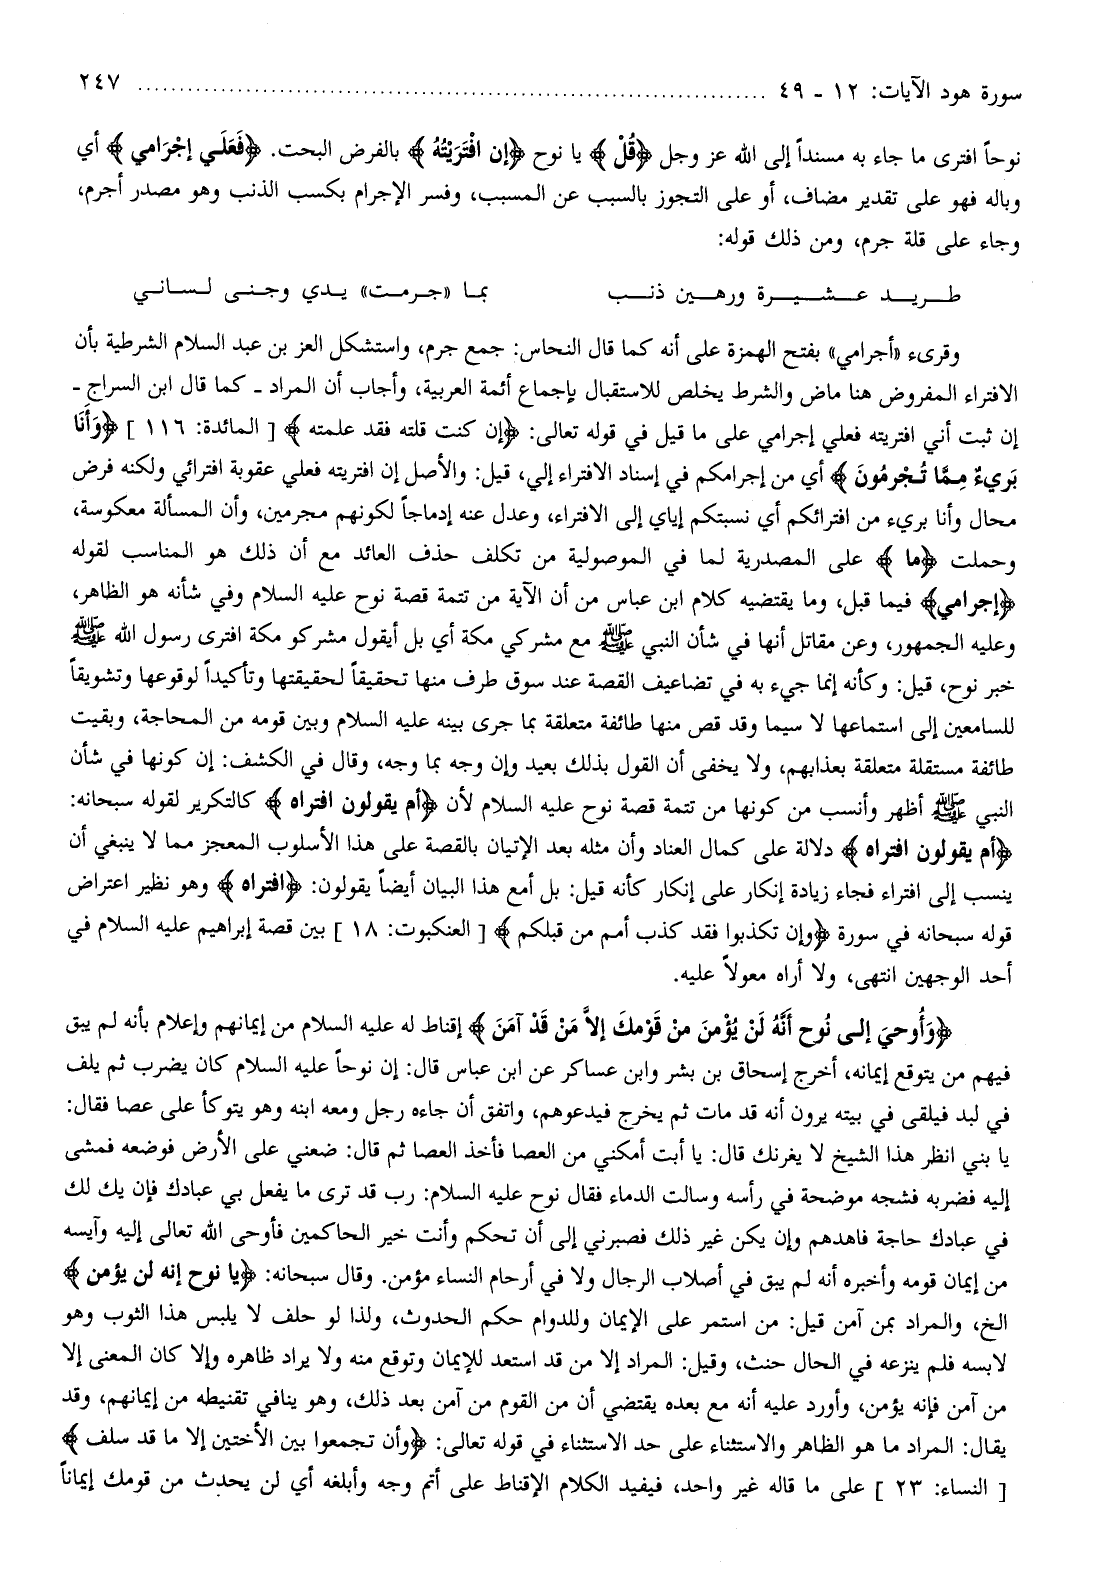 سورة هود الآيات: ١٢ - ٤٩ ........................................................................ ٢٤٧
نوحاً افترى ما جاء به مسنداً إلى الله عز وجل ﴿قُلْ﴾ يا نوح ﴿إن افْتَرَيْتُهُ﴾ بالفرض البحت. ﴿فَعَلَي إجْرَامي﴾ أي
وباله فهو على تقدير مضاف، أو على التجوز بالسبب عن المسبب، وفسر الإجرام بكسب الذنب وهو مصدر أجرم،
وجاء على قلة جرم، ومن ذلك قوله:
طريد عشيرة ورهين ذنب بما «جرمت» يدي وجنى لساني
وقرىء «أجرامي» بفتح الهمزة على أنه كما قال النحاس: جمع جرم، واستشكل العز بن عبد السلام الشرطية بأن
الافتراء المفروض هنا ماض والشرط يخلص للاستقبال بإجماع أئمة العربية، وأجاب أن المراد ـ كما قال ابن السراج ـ
إن ثبت أني افتريته فعلي إجرامي على ما قيل في قوله تعالى: ﴿إن كنت قلته فقد علمته﴾ [ المائدة: ١١٦ ] ﴿وَأَنَا
بَريءٌ مِـمَّا تُـجْرمُونَ﴾ أي من إجرامكم في إسناد الافتراء إلي، قيل: والأصل إن افتريته فعلي عقوبة افترائي ولكنه فرض
محال وأنا بريء من افترائكم أي نسبتكم إياي إلى الافتراء، وعدل عنه إدماجاً لكونهم مجرمين، وأن المسألة معكوسة،
وحملت ﴿ما﴾ على المصدرية لما في الموصولية من تكلف حذف العائد مع أن ذلك هو المناسب لقوله
﴿إجرامي﴾ فيما قبل، وما يقتضيه كلام ابن عباس من أن الآية من تتمة قصة نوح عليه السلام وفي شأنه هو الظاهر،
وعليه الجمهور، وعن مقاتل أنها في شأن النبي ﷺ مع مشركي مكة أي بل أيقول مشركو مكة افترى رسول الله ﷺ
خبر نوح، قيل: وكأنه إنما جيء به في تضاعيف القصة عند سوق طرف منها تحقيقاً لحقيقتها وتأكيداً لوقوعها وتشويقاً
للسامعين إلى استماعها لا سيما وقد قص منها طائفة متعلقة بما جرى بينه عليه السلام وبين قومه من المحاجة، وبقيت
طائفة مستقلة متعلقة بعذابهم، ولا يخفى أن القول بذلك بعيد وإن وجه بما وجه، وقال في الكشف: إن كونها في شأن
النبي ﷺ أظهر وأنسب من كونها من تتمة قصة نوح عليه السلام لأن ﴿أم يقولون افتراه﴾ كالتكرير لقوله سبحانه:
﴿أم يقولون افتراه﴾ دلالة على كمال العناد وأن مثله بعد الإتيان بالقصة على هذا الأسلوب المعجز مما لا ينبغي أن
ينسب إلى افتراء فجاء زيادة إنكار على إنكار كأنه قيل: بل أمع هذا البيان أيضاً يقولون: ﴿افتراه﴾ وهو نظير اعتراض
قوله سبحانه في سورة ﴿وإن تكذبوا فقد كذب أمم من قبلكم﴾ [ العنكبوت: ١٨ ] بين قصة إبراهيم عليه السلام في
أحد الوجهين انتهى، ولا أراه معولاً عليه.
﴿وَأُوحيَ إلـى نُوح أنَّهُ لَنْ يُؤْمنَ منْ قَوْمكَ إلاَّ مَنْ قَدْ آمَنَ﴾ إقناط له عليه السلام من إيمانهم وإعلام بأنه لم يبق
فيهم من يتوقع إيمانه، أخرج إسحاق بن بشر وابن عساكر عن ابن عباس قال: إن نوحاً عليه السلام كان يضرب ثم يلف
في لبد فيلقى في بيته يرون أنه قد مات ثم يخرج فيدعوهم، واتفق أن جاءه رجل ومعه ابنه وهو يتوكأ على عصا فقال:
يا بني انظر هذا الشيخ لا يغرنك قال: يا أبت أمكني من العصا فأخذ العصا ثم قال: ضعني على الأرض فوضعه فمشى
إليه فضربه فشجه موضحة في رأسه وسالت الدماء فقال نوح عليه السلام: رب قد ترى ما يفعل بي عبادك فإن يك لك
في عبادك حاجة فاهدهم وإن يكن غير ذلك فصبرني إلى أن تحكم وأنت خير الحاكمين فأوحى الله تعالى إليه وآيسه
من إيمان قومه وأخبره أنه لم يبق في أصلاب الرجال ولا في أرحام النساء مؤمن. وقال سبحانه: ﴿يا نوح إنه لن يؤمن﴾
الخ، والمراد بمن آمن قيل: من استمر على الإيمان وللدوام حكم الحدوث، ولذا لو حلف لا يلبس هذا الثوب وهو
لابسه فلم ينزعه في الحال حنث، وقيل: المراد إلا من قد استعد للإيمان وتوقع منه ولا يراد ظاهره وإلا كان المعنى إلا
من آمن فإنه يؤمن، وأورد عليه أنه مع بعده يقتضي أن من القوم من آمن بعد ذلك، وهو ينافي تقنيطه من إيمانهم، وقد
يقال: المراد ما هو الظاهر والاستثناء على حد الاستثناء في قوله تعالى: ﴿وأن تجمعوا بين الأختين إلا ما قد سلف﴾
[ النساء: ٢٣ ] على ما قاله غير واحد، فيفيد الكلام الإقناط على أتم وجه وأبلغه أي لن يحدث من قومك إيماناً